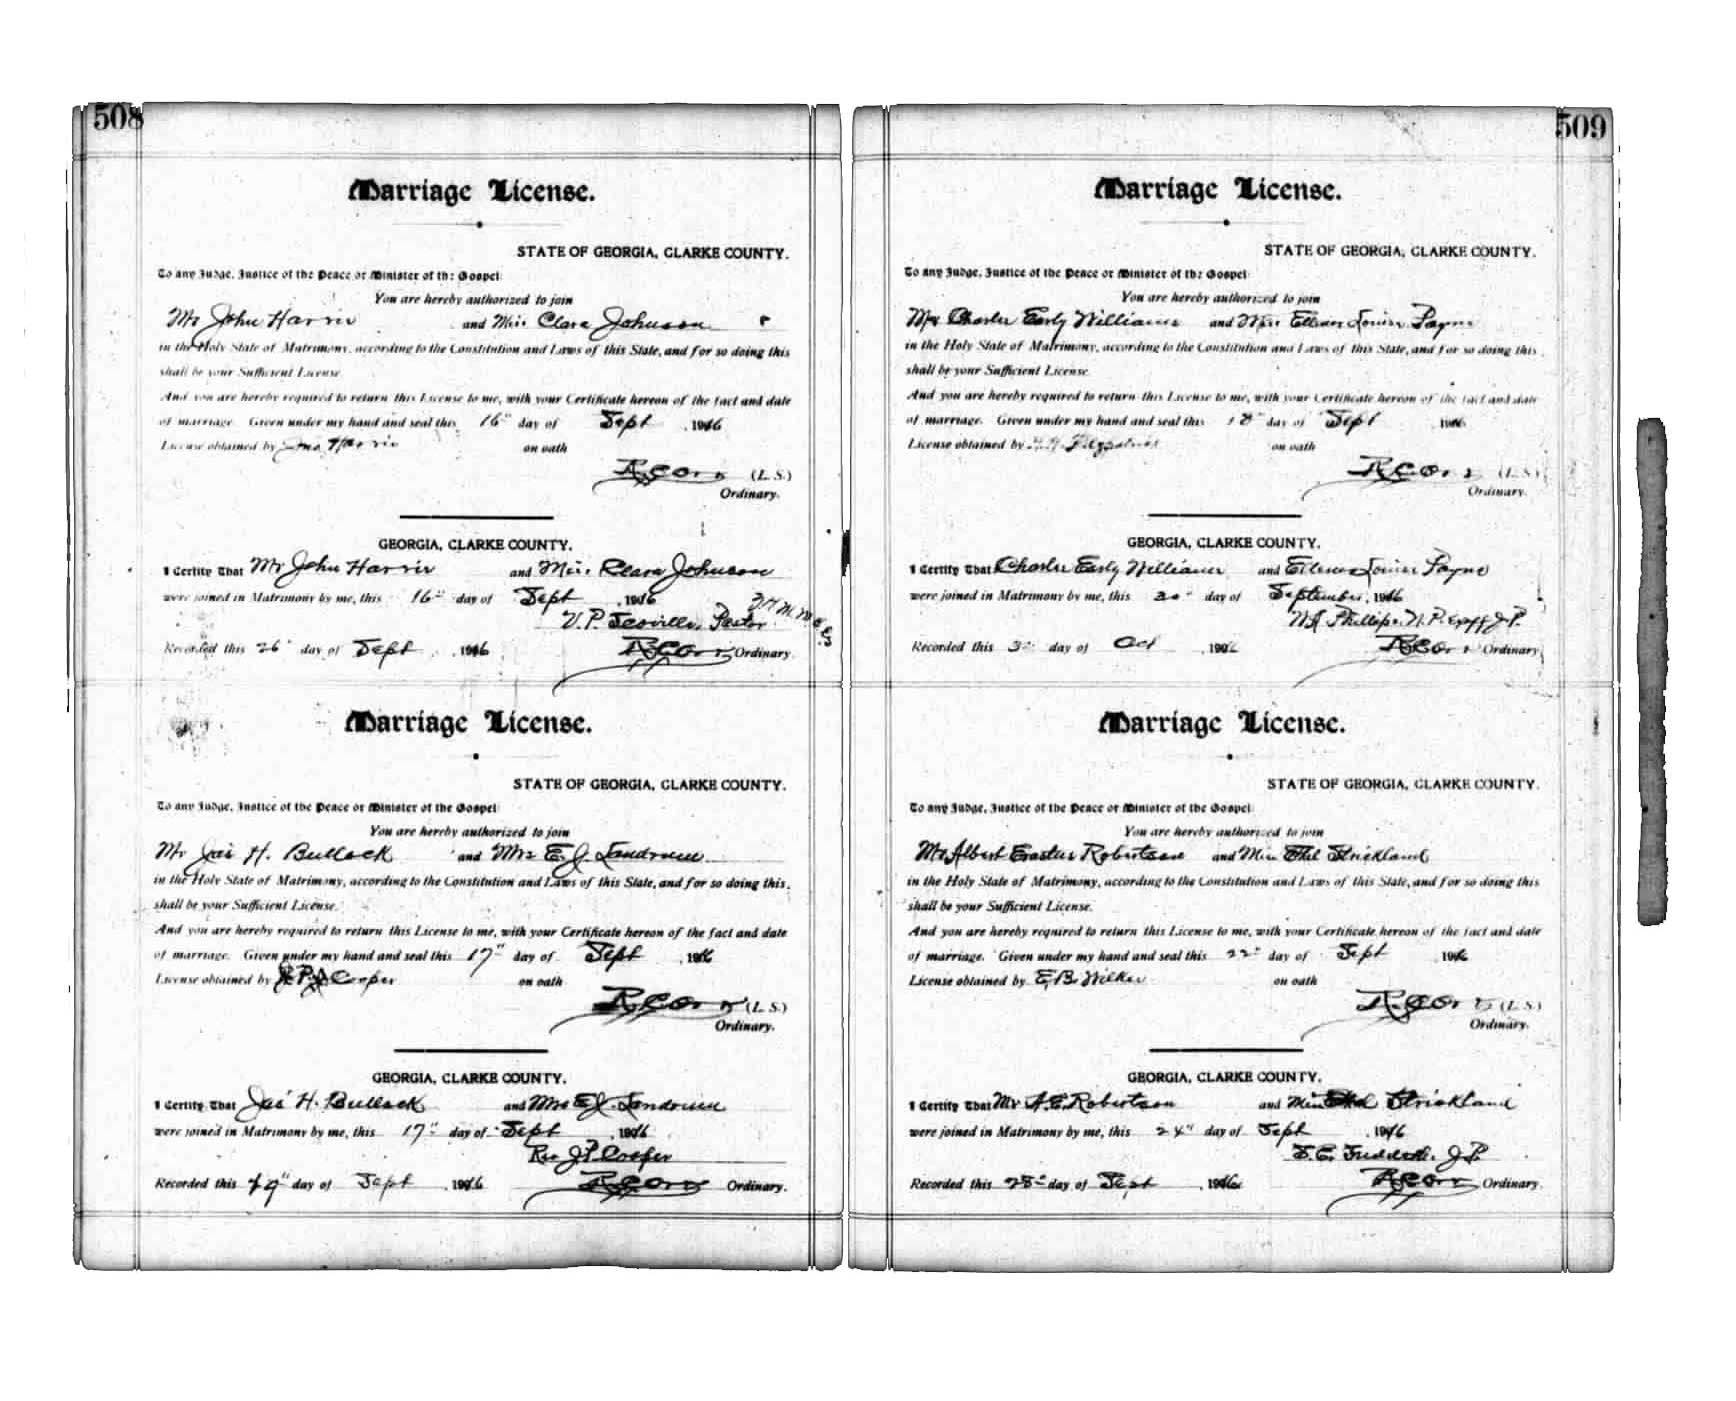 508
Marriage License.
STATE OF GEORGIA, CLARKE COUNTY.
To any Judge, Justice of the Peace or Minister of the Gospel:
You are hereby authorized to join
Mr John Harris and Miss Clara Johnson
in the Holy State of Matrimony, according to the Constitution and Laws of this State, and for so doing this
shall be your Sufficient License.
And you are hereby required to return this License to me, with your Certificate hereon of the fact and date
of marriage. Given under my hand and seal this 16" day of Sept , 1916
License obtained by Jno Harris on oath
R C Orr (L. S.)
Ordinary.
GEORGIA, CLARKE COUNTY.
I Certify That Mr John Harris and Miss Clara Johnson
were joined in Matrimony by me, this 16" day of Sept , 1916
V. P. Scoville, Pastor
Recorded this 26" day of Sept , 1916 R C Orr Ordinary.
Marriage License.
STATE OF GEORGIA, CLARKE COUNTY.
To any Judge, Justice of the Peace or Minister of the Gospel:
You are hereby authorized to join
Mr Jas H. Bullock and Mrs E. J. Landrum
in the Holy State of Matrimony, according to the Constitution and Laws of this State, and for so doing this
shall be your Sufficient License.
And you are hereby required to return this License to me, with your Certificate hereon of the fact and date
of marriage. Given under my hand and seal this 17" day of Sept , 1916
License obtained by Cooper on oath
R C Orr (L. S.)
Ordinary.
GEORGIA, CLARKE COUNTY.
I Certify That Jas H. Bullock and Mrs E. J. Landrum
were joined in Matrimony by me, this 17" day of Sept , 1916
Rev J. P. Cooper
Recorded this 19" day of Sept , 1916 R C Orr Ordinary.
509
Marriage License.
STATE OF GEORGIA, CLARKE COUNTY.
To any Judge, Justice of the Peace or Minister of the Gospel:
You are hereby authorized to join
Mr Charles Early Williams and Miss Ellene Louise Payne
in the Holy State of Matrimony, according to the Constitution and Laws of this State, and for so doing this
shall be your Sufficient License.
And you are hereby required to return this License to me, with your Certificate hereon of the fact and date
of marriage. Given under my hand and seal this 18" day of Sept 1916
License obtained by Fitzpatrick on oath
R C Orr (L. S.)
Ordinary.
GEORGIA, CLARKE COUNTY.
I Certify That Charles Early Williams and Ellene Louise Payne
were joined in Matrimony by me, this 20" day of September, 1916
Phillips. N. P. Exoff J. P.
Recorded this 3" day of Oct , 1916 R C Orr Ordinary.
Marriage License.
STATE OF GEORGIA, CLARKE COUNTY.
To any Judge, Justice of the Peace or Minister of the Gospel:
You are hereby authorized to join
Mr Albert Erastus Robertson and Miss Ethel Strickland
in the Holy State of Matrimony, according to the Constitution and Laws of this State, and for so doing this
shall be your Sufficient License.
And you are hereby required to return this License to me, with your Certificate hereon of the fact and date
of marriage. Given under my hand and seal this 22" day of Sept 1916
License obtained by E. B. Wilker on oath
R C Orr (L. S.)
Ordinary.
GEORGIA, CLARKE COUNTY.
I Certify That Mr A. E. Robertson and Miss Ethel Strickland
were joined in Matrimony by me, this 24" day of Sept , 1916
J. P.
Recorded this 28" day of Sept , 1916 R C Orr Ordinary.